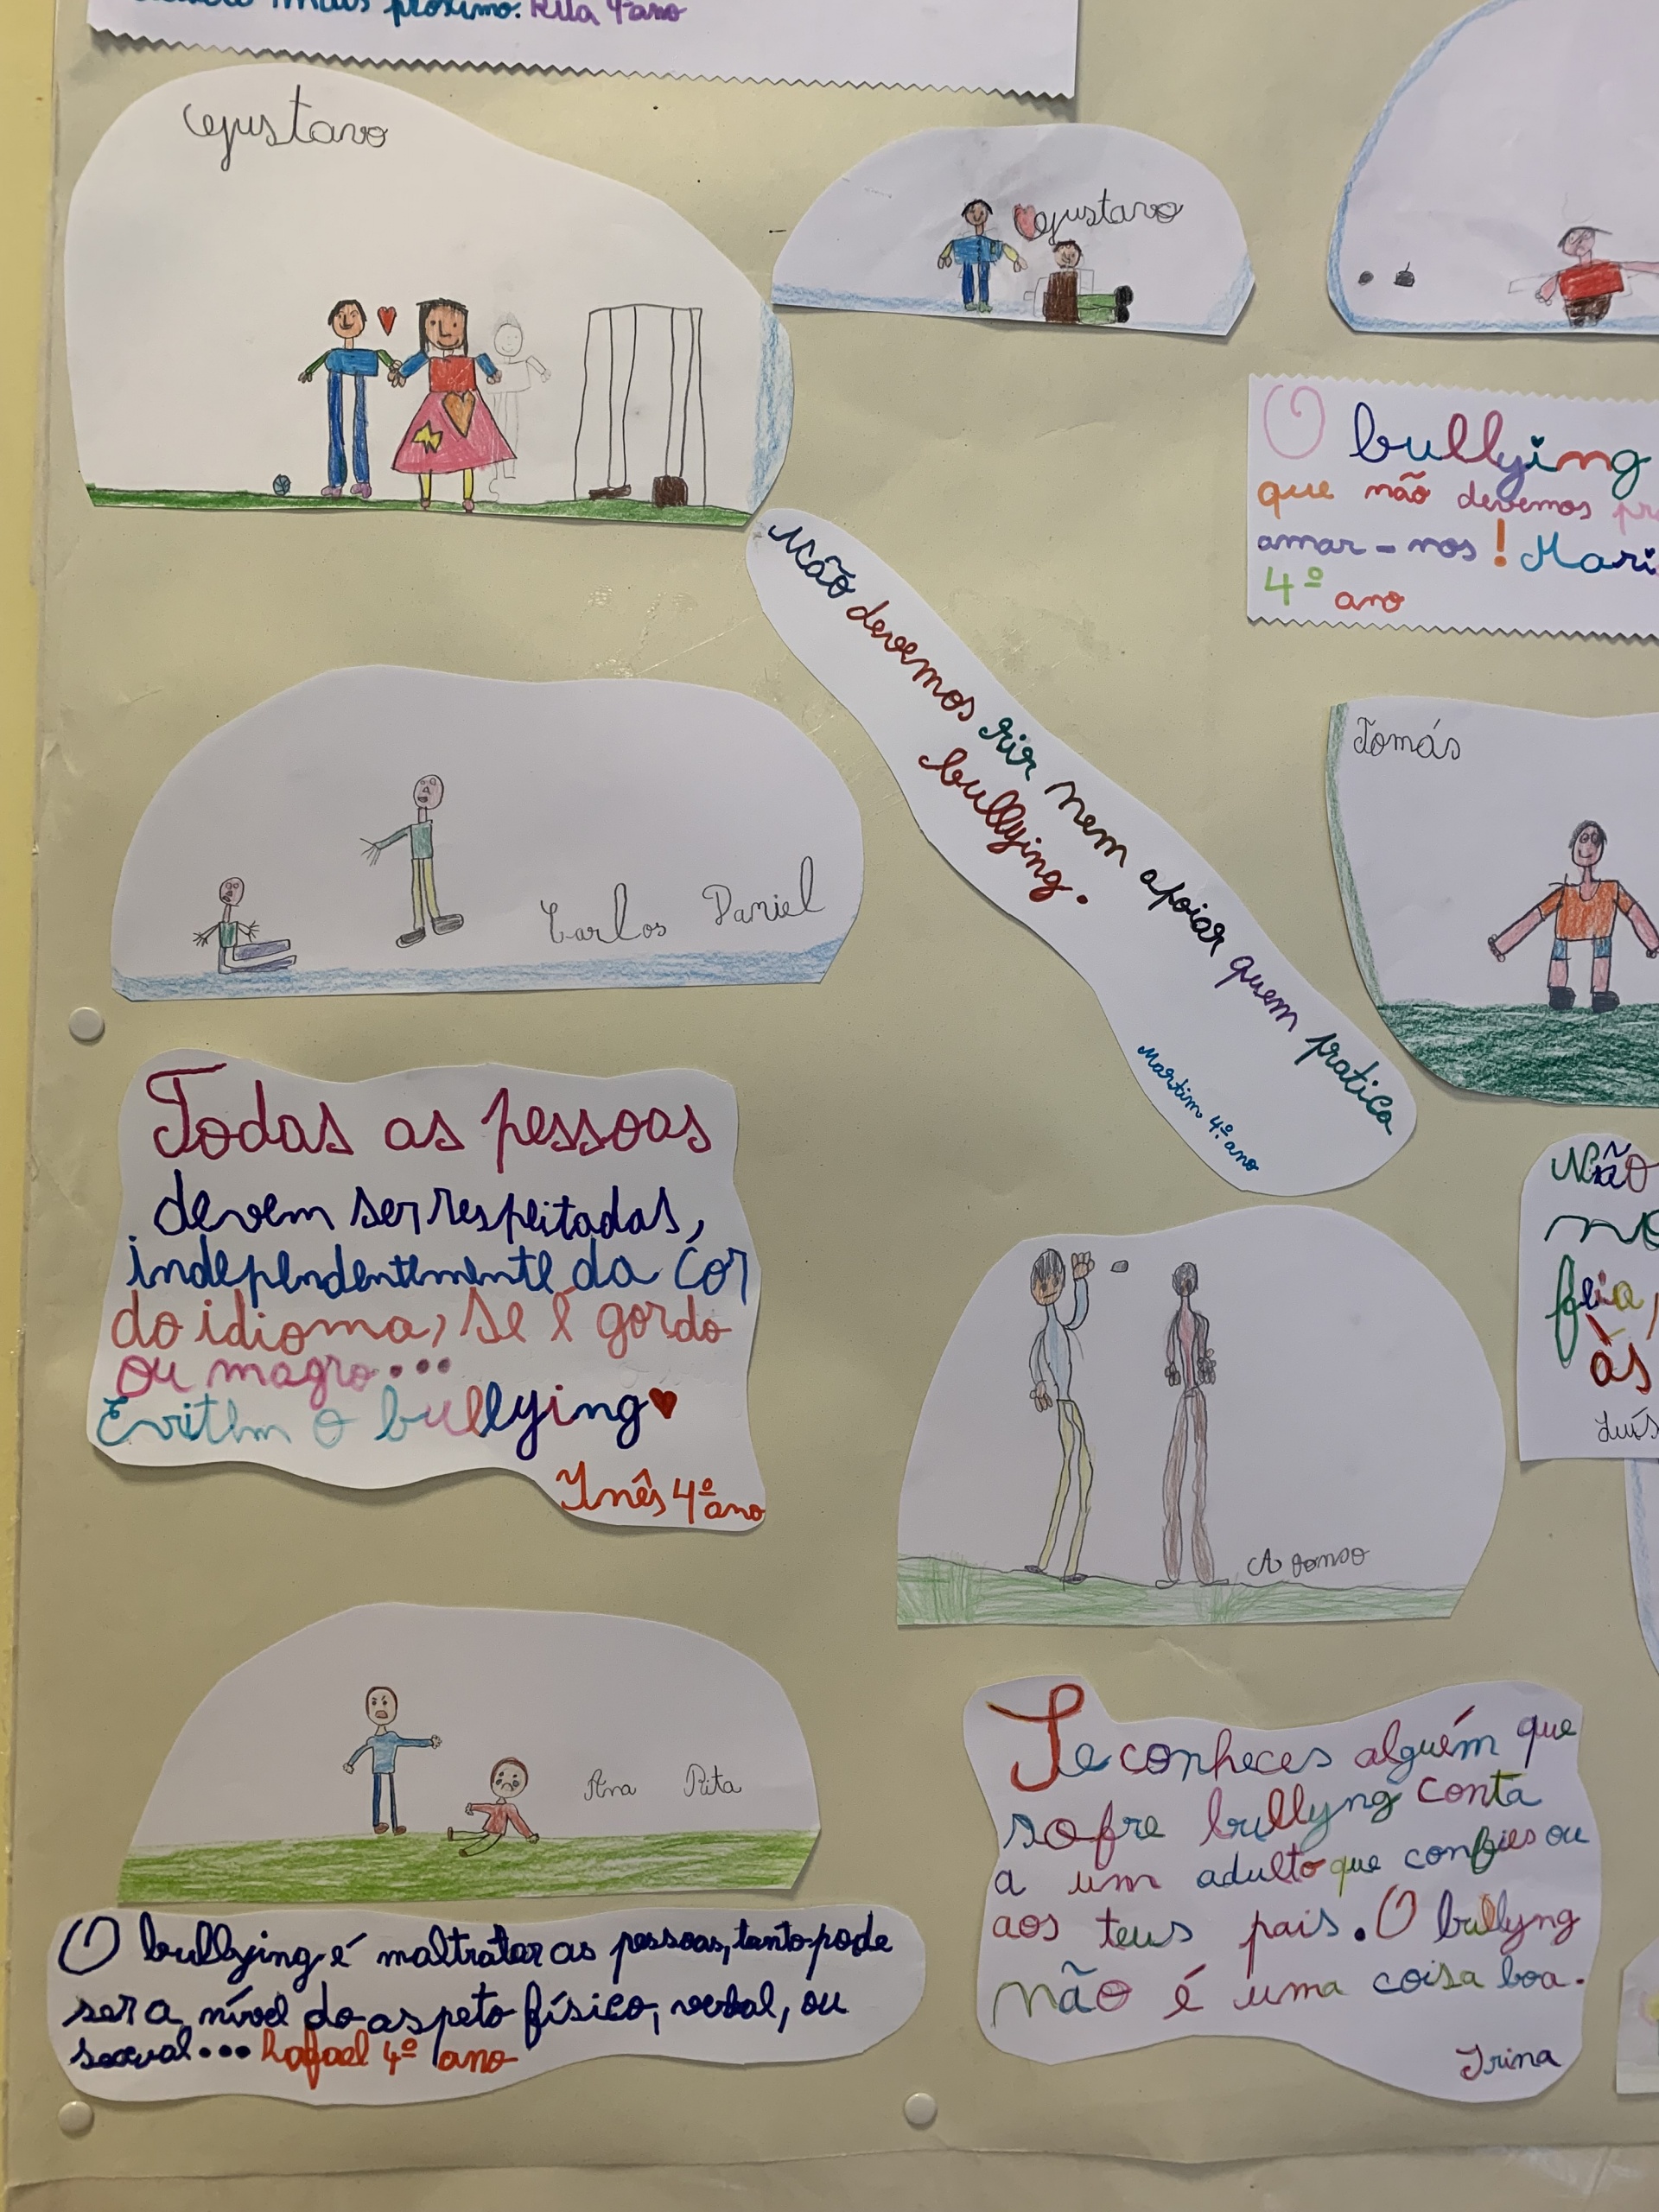 mais próximo. Rita 4º ano
Gustavo
Gustavo
O bullying
que não devemos
amar-nos! Mari
4º ano
Não devemos rir nem apoiar quem pratica
bullying.
Martim 4º ano
Tomás
Carlos Daniel
Todas as pessoas
devem ser respeitadas,
independentemente da cor
do idioma, se é gordo
ou magro...
Evitem o bullying
Inês 4º ano
Não
feia,
às
Luís
Afonso
Ana Rita
O bullying é maltratar as pessoas, tanto pode
ser a nível do aspeto físico, verbal, ou
sexual... Rafael 4º ano
Se conheces alguém que
sofre bullyng conta
a um adulto que confies ou
aos teus pais. O bullyng
não é uma coisa boa.
Irina